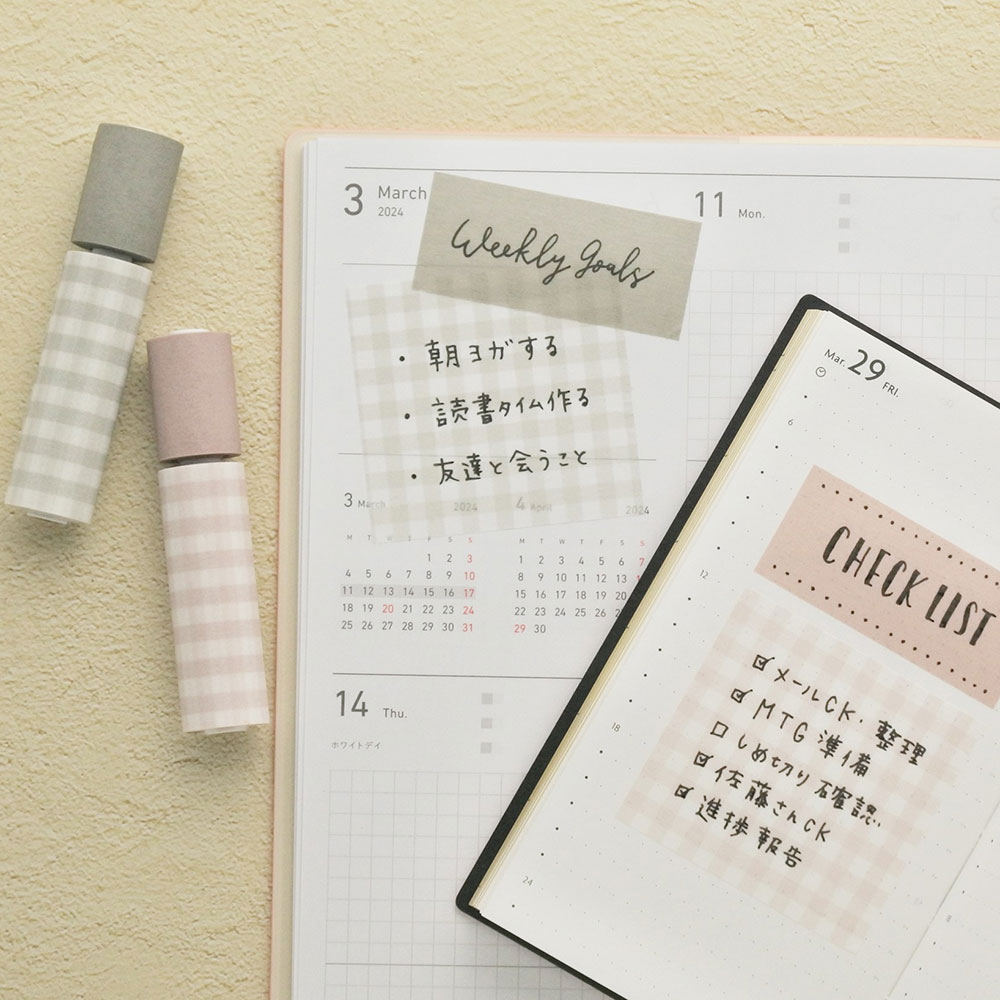 3 March
2024
Weekly Goals
・朝ヨガする
・読書タイム作る
・友達と会うこと
3 March 2024
M T W T F S S
1 2 3
4 5 6 7 8 9 10
11 12 13 14 15 16 17
18 19 20 21 22 23 24
25 26 27 28 29 30 31
4 April 2024
M T W T F S S
1 2 3 4 5 6 7
8 9 10 11 12 13
15 16 17 18 19
22 23 24 25
29 30
11 Mon.
14 Thu.
ホワイトデイ
Mar. 29 FRI.
6
12
18
24
CHECK LIST
☑ メールCK・整理
☑ MTG準備
☐ しめ切り確認
☑ 佐藤さんCK
☑ 進捗報告
8